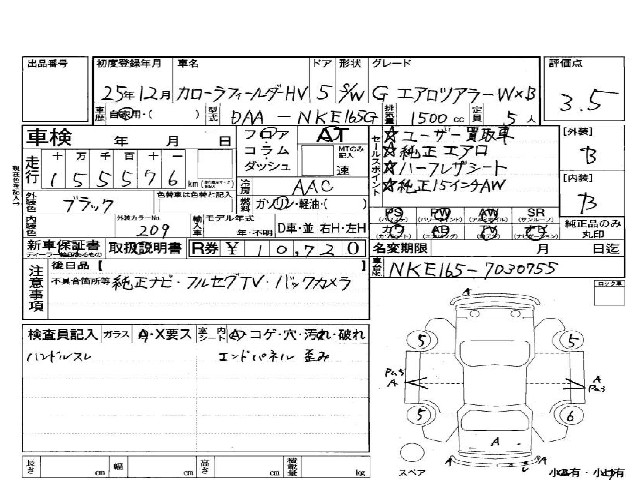 出品番号 初度登録年月 車名 ドア 形状 グレード 評価点
25年12月 カローラフィールダーHV 5 S/W G エアロツアラーW×B 3.5
車歴 自家用・( ) 型式 DAA-NKE165G 排気量 1500cc 定員 5人
車検 年 月 日 フロア AT セールスポイント ☆ユーザー買取車 [外装]
走行 十 万 千 百 十 一 コラム MTのみ記入 ☆純正エアロ B
155576 km ダッシュ 速 ☆ハーフレザシート [内装]
冷房 AAC ☆純正15インチAW B
外装色 ブラック 色替車は色替と記入 燃料 ガソリン・軽油・( )
PS PW AW SR 純正品のみ丸印
内装色 外装カラーNo. 209 輸入車 モデル年式 年・不明 D車・並 右H・左H カワ AB TV ナビ
新車保証書 取扱説明書 R券 ¥10,720 名変期限 月 日迄
注意事項 後日品【 】 車台No. NKE165-7030755
不具合箇所等 純正ナビ・フルセグTV・バックカメラ ロック車
検査員記入 ガラス A・X要ス 室内 シート 内ト A・コゲ・穴・汚れ・破れ
ハンドルスレ エンドパネル歪み
A
5 5
Pas A A Pas
5 6
A
スペア 小 有・小 有
長さ cm 幅 cm 高さ cm 積載量 kg